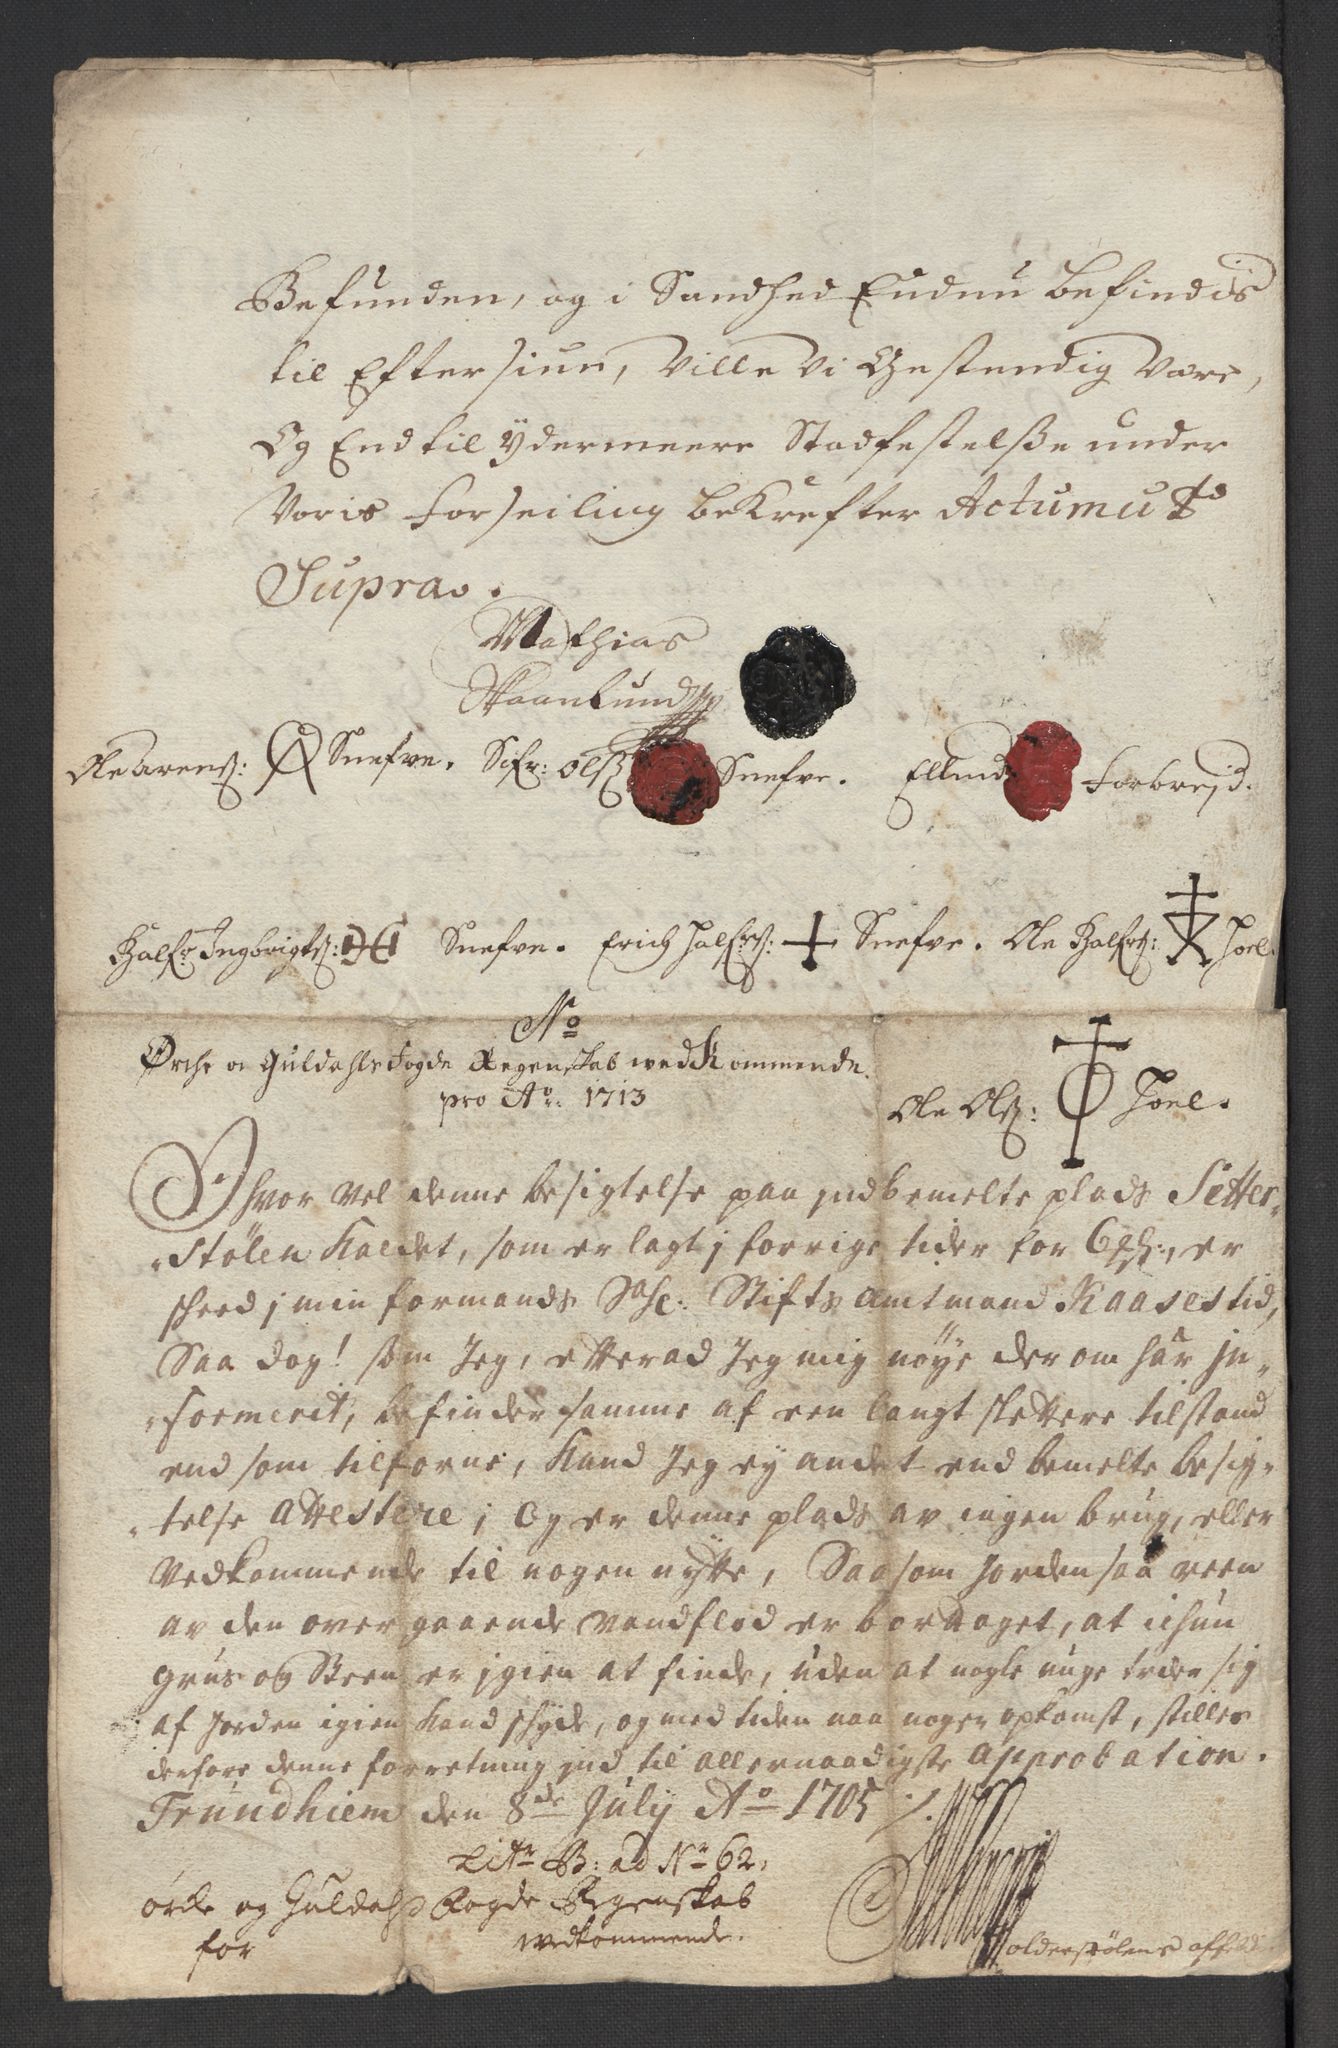 Befunden, og i Sandhed Endnu befindis
til Eftersiun, Ville Vi Gestendig Være,
Og End til ÿdermeere Stadfestelße under
Voris forseiling beKrefter Actum ut
Supra.
Mathias
Skaanlund
Ole arensß: Snefve. Sifr: olsß Snefve. Ellend Forbrejd.
Halfr Ingbrigtß: Snefve. Erich Halfrß: + Snefve. Ole Halfrß: Hoel.
No
Ørche oc Guldahls Fogde Regenskab wedKommende.
pro Ao: 1713
Ole Olß: Hoel.
Ihvor vel denne besigtelse paa jndbemelte plads Sætter-
-stølen kaldet, som er lagt j forrige tider for 6 , er
skeed j min formands Sal: Stifts amtmand Kaases tid,
Saa dog! som Jeg, etterad Jeg mig nøye der om har jn-
-formerit, befinder samme af een langt slettere tilstand
end som tilforne, kand Jeg ey andet end bemelte besig-
-telse attestere; Og er denne plads av ingen brug, eller
vedkommende til nogen nytte, Saasom Jorden saa reen
av den over gaaende vandflod er bortaget, at ichun
grus og Steen er jgien at finde, uden at nogle unge træer sig
af Jorden igien kand skyde, og med tiden naa nogen opkomst, stilles
derfore denne forretning ind til allernaadigste approbation.
Trundhiem den 8de July Ao 1705 ./.
Litr B: ad No 62,
Orke og Guldahls Fogde Regenskab
for wedkommende.
olderstølens affæld